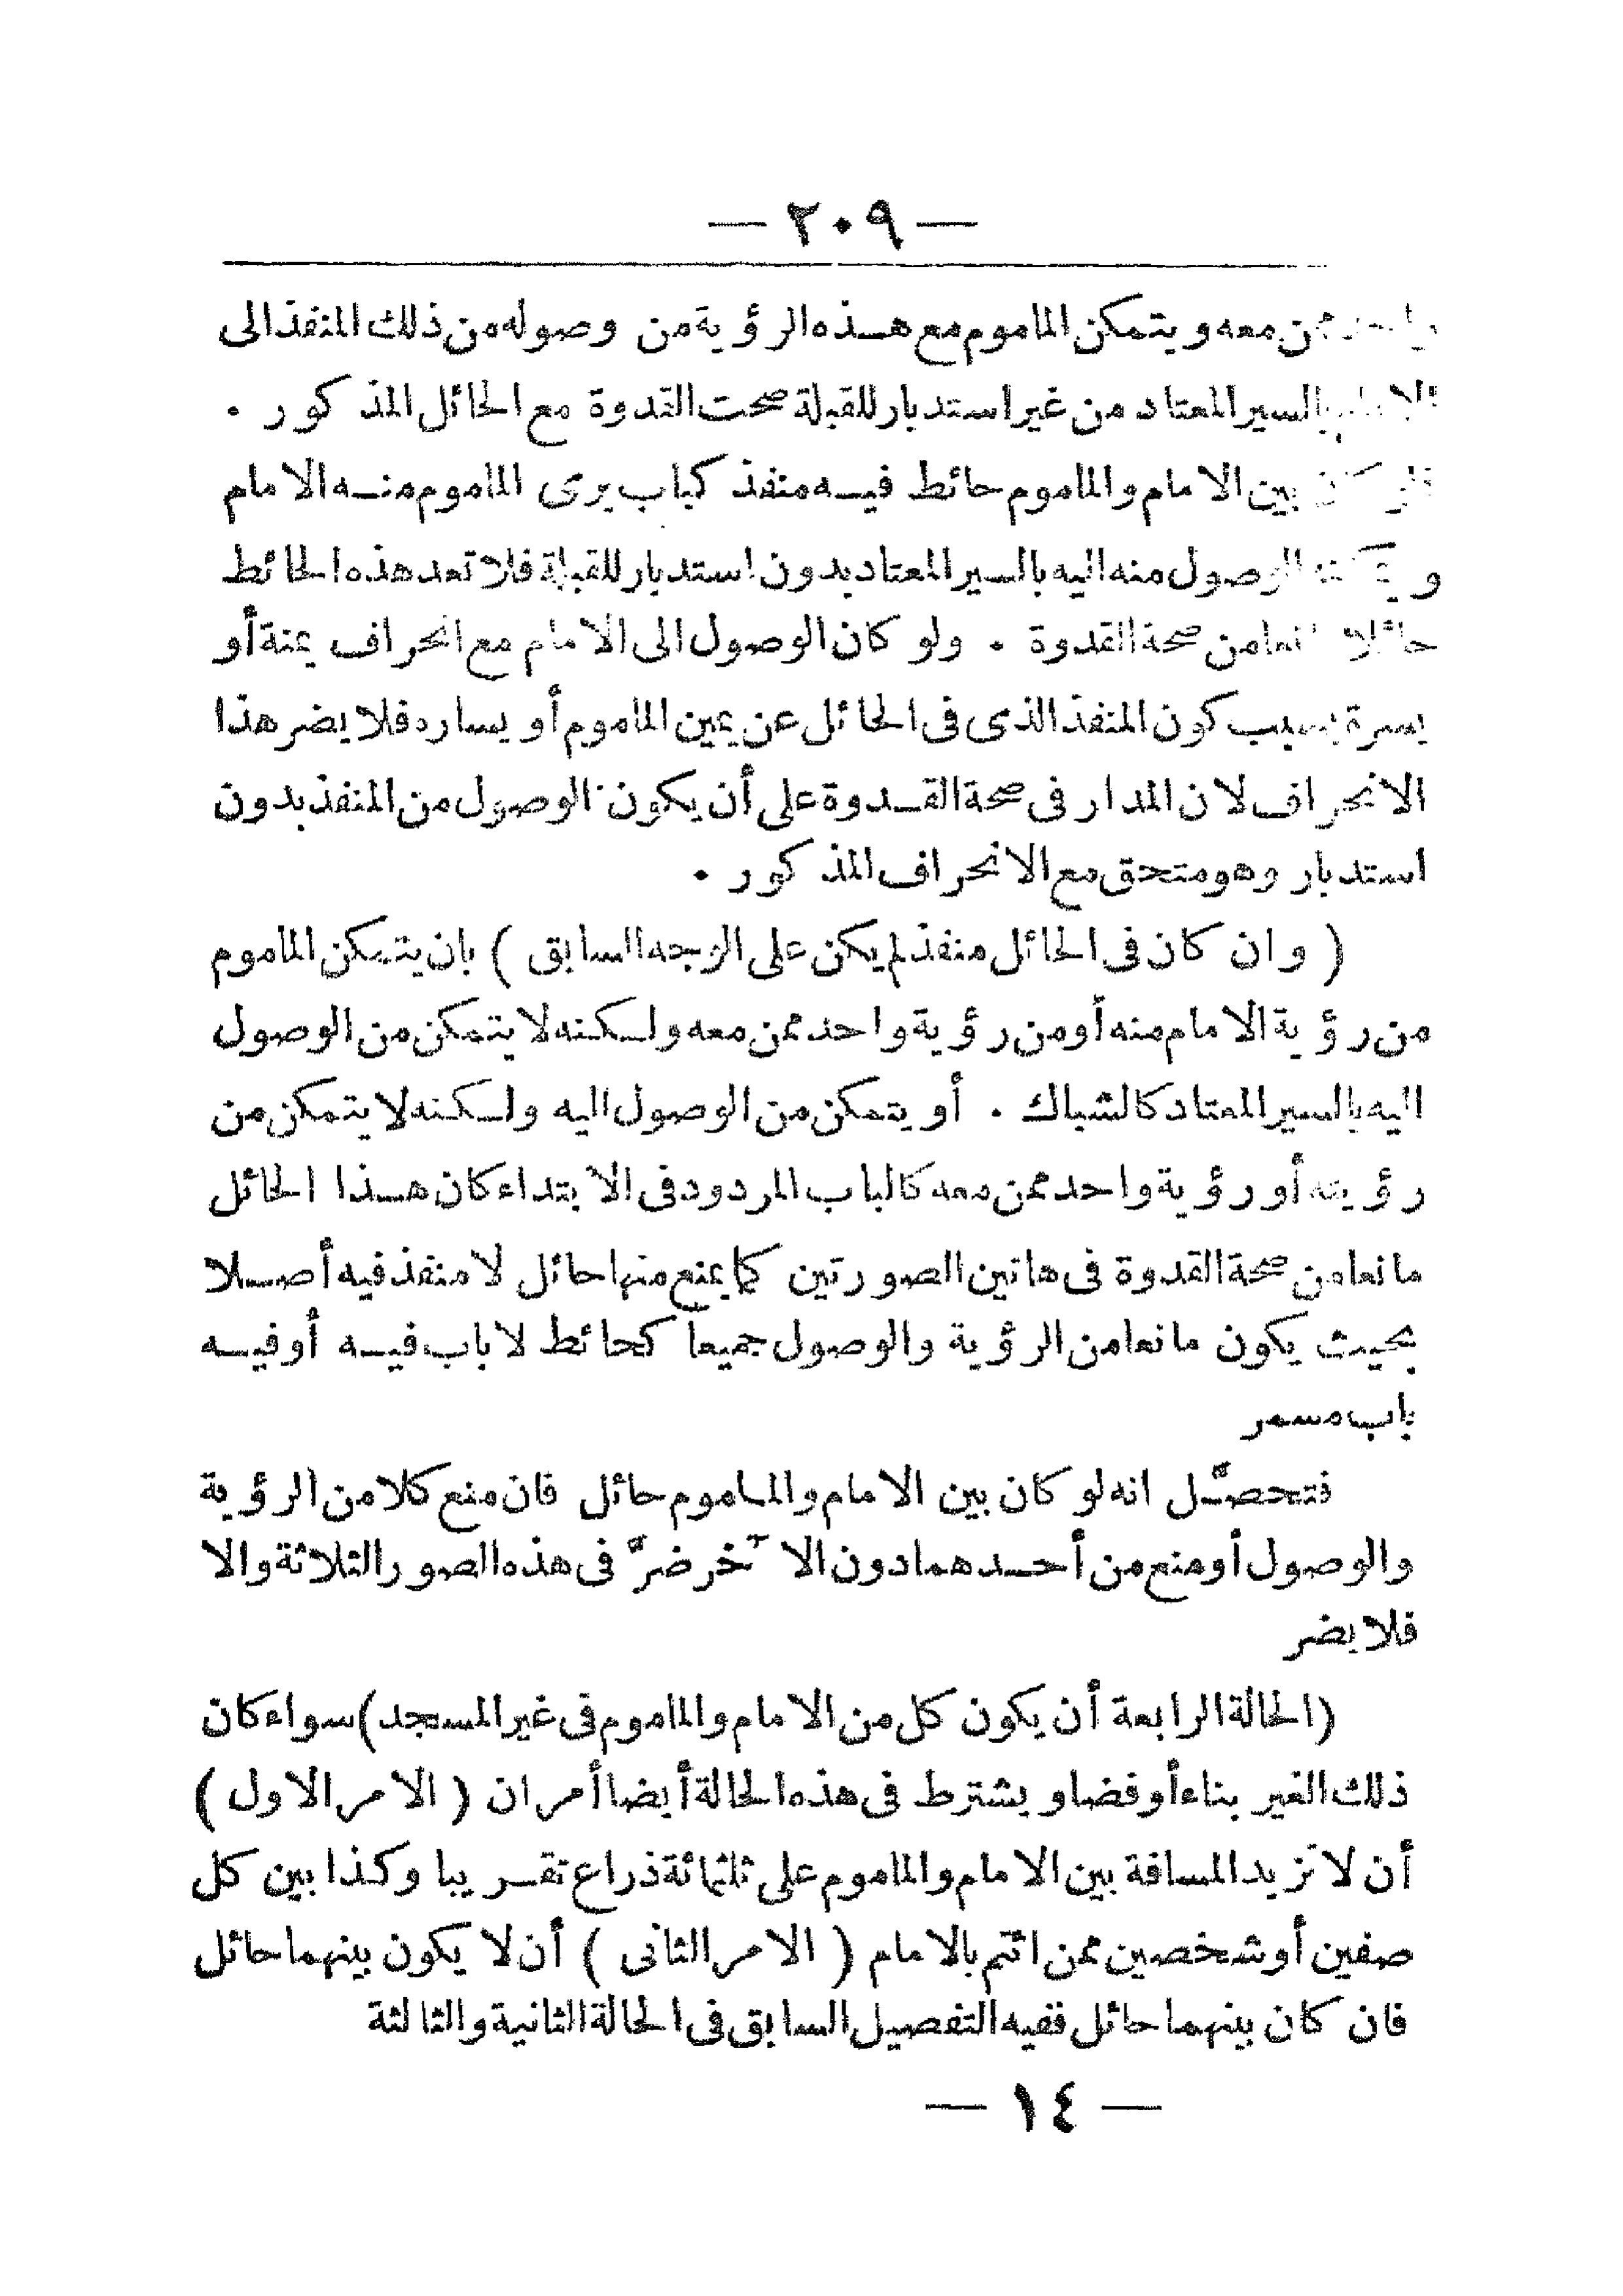 — ٢٠٩ —
واحد ممن معه ويتمكن المأموم مع هذه الرؤية من وصوله من ذلك المنفذ الى
الامام بالسير المعتاد من غير استدبار للقبلة صحت القدوة مع الحائل المذكور .
فلو كان بين الامام والمأموم حائط فيه منفذ كباب يرى المأموم منه الامام
ويمكنه الوصول منه اليه بالسير المعتاد بدون استدبار للقبلة فلا تعد هذه الحائط
حائلا مانعا من صحة القدوة . ولو كان الوصول الى الامام مع انحراف يمنة أو
يسرة بسبب كون المنفذ الذى فى الحائل عن يمين المأموم أو يساره فلا يضر هذا
الانحراف لان المدار فى صحة القدوة على أن يكون الوصول من المنفذ بدون
استدبار وهو متحقق مع الانحراف المذكور .
( وان كان فى الحائل منفذ لم يكن على الوجه السابق ) بان يتمكن المأموم
من رؤية الامام منه أو من رؤية واحد ممن معه ولكنه لا يتمكن من الوصول
اليه بالسير المعتاد كالشباك . أو يتمكن من الوصول اليه ولكنه لا يتمكن من
رؤيته أو رؤية واحد ممن معه كالباب المردود فى الابتداء كان هذا الحائل
مانعا من صحة القدوة فى هاتين الصورتين كما يمنع منها حائل لا منفذ فيه أصلا
بحيث يكون مانعا من الرؤية والوصول جميعا كحائط لا باب فيه أو فيه
باب مسمر
فتحصَّل انه لو كان بين الامام والمأموم حائل فان منع كلا من الرؤية
والوصول أو منع من أحدهما دون الآخر ضرَّ فى هذه الصور الثلاثة والا
فلا يضر
(الحالة الرابعة أن يكون كل من الامام والمأموم فى غير المسجد) سواء كان
ذلك الغير بناء أو فضا ويشترط فى هذه الحالة أيضا أمران ( الامر الاول )
أن لا تزيد المسافة بين الامام والمأموم على ثلثمائة ذراع تقريبا وكذا بين كل
صفين أو شخصين ممن ائتم بالامام ( الامر الثانى ) أن لا يكون بينهما حائل
فان كان بينهما حائل ففيه التفصيل السابق فى الحالة الثانية والثالثة
— ١٤ —